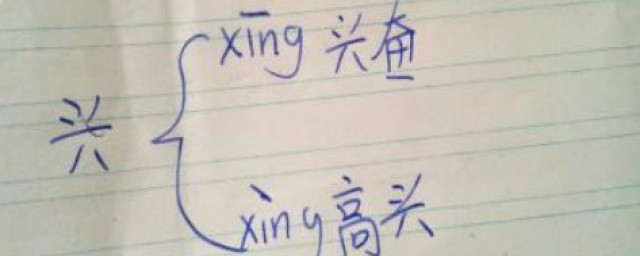 xīng 兴奋
兴
xìng 高兴